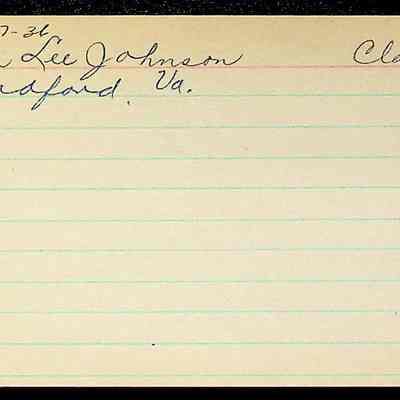 7-36
Lee Johnson Cla
dford, Va.